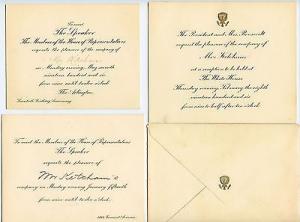 To meet
The Speaker
The Members of the House of Representatives
requests the pleasure of the company of
on Monday evening, May
nineteen hundred and
from nine until twelve o'clock
The Arlington
The President and Mrs. Roosevelt
request the pleasure of the company of
Mr. Ketcham
at a reception to be held at
The White House
Thursday evening, February the eighth
nineteen hundred and six
from nine to half after ten o'clock
To meet the Members of the House of Representatives
The Speaker
requests the pleasure of
Mr. Ketcham's
company on Monday evening, January fifteenth
from nine until twelve o'clock